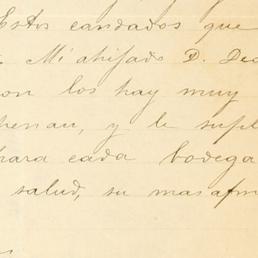 Estos candados que
Mi ahijado D. Deo
on los hay muy
henan, y le supl
para cada bodega
salud, su mas afm